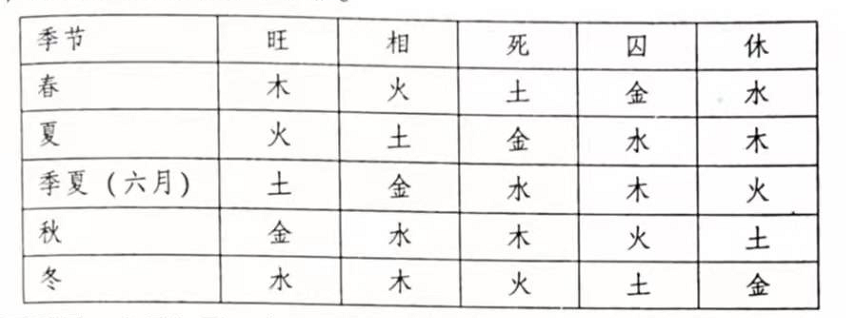 季节 旺 相 死 囚 休
春 木 火 土 金 水
夏 火 土 金 水 木
季夏（六月） 土 金 水 木 火
秋 金 水 木 火 土
冬 水 木 火 土 金